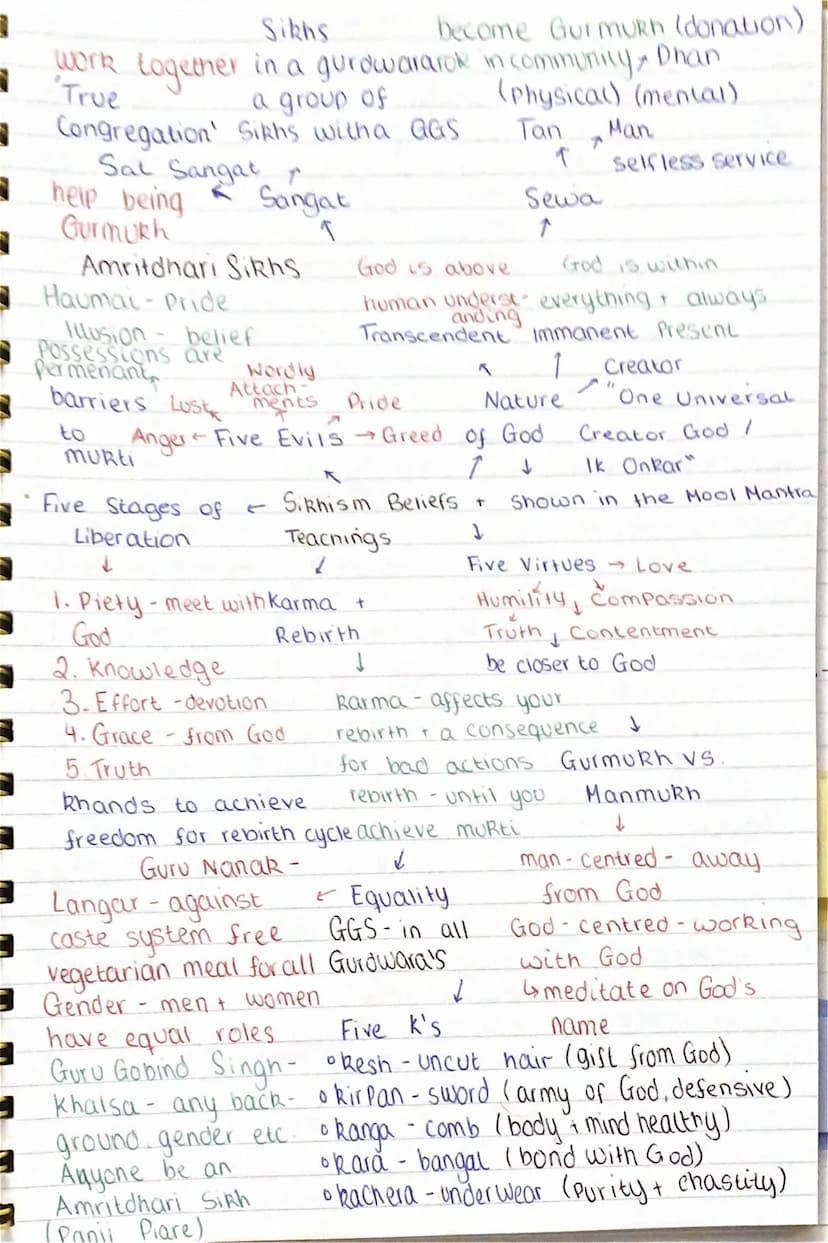 Sikhs become Gurmukh (donation)
work together in a gurdwara rok in community, ↗ Dhan
'True a group of (physical) (mental)
Congregation' Sikhs with a GGS Tan ↗ Man
Sat Sangat ↑ ↑ selfless service
help being ↖ Sangat Sewa
Gurmukh ↑ ↑
Amritdhari Sikhs God is above God is within
Haumai - pride human underst- everything + always
Illusion - belief anding
possessions are Transcendent immanent present
permenant, Wordly ↖ ↑ Creator
barriers Lust Attach-ments Pride Nature ↗ "One Universal
to Anger ← Five Evils → Greed of God Creator God /
murti ↖ ↑ ↓ Ik Onkar"
Five Stages of ← Sikhism Beliefs + Shown in the Mool Mantra
Liberation Teacnings ↓
↓ ↙ Five Virtues → Love
1. Piety - meet with Karma + Humility, Compassion
God Rebirth Truth, Contentment
2. Knowledge ↓ be closer to God
3. Effort - devotion karma - affects your
4. Grace - from God rebirth + a consequence ↓
5. Truth for bad actions Gurmukh vs.
khands to achieve rebirth - until you Manmukh
freedom for rebirth cycle achieve murti ↓
Guru Nanak - ↙ man-centred - away
Langar - against ← Equality from God
caste system free GGS - in all God-centred - working
vegetarian meal for all Gurdwara's with God
Gender - men + women ↙ ↳ meditate on God's
have equal roles Five K's name
Guru Gobind Singh - ° kesh - uncut hair (gift from God)
Khalsa - any back- ° kirpan - sword (army of God, defensive)
ground, gender etc. ° kanga - comb (body + mind healthy)
Anyone be an ° kara - bangal (bond with God)
Amritdhari Sikh ° kachera - underwear (purity + chastity)
(Panji Piare)